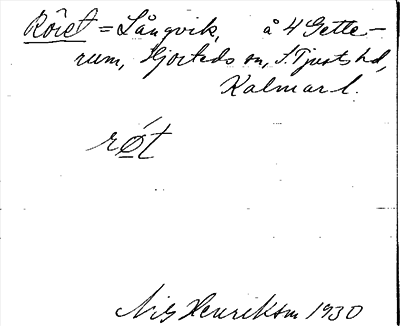 Röret = Långvik, å 4 Gette-
rum, Hjorteds sn, S. Tjusts hd,
Kalmar l.
røt
Nils Henrikson 1930